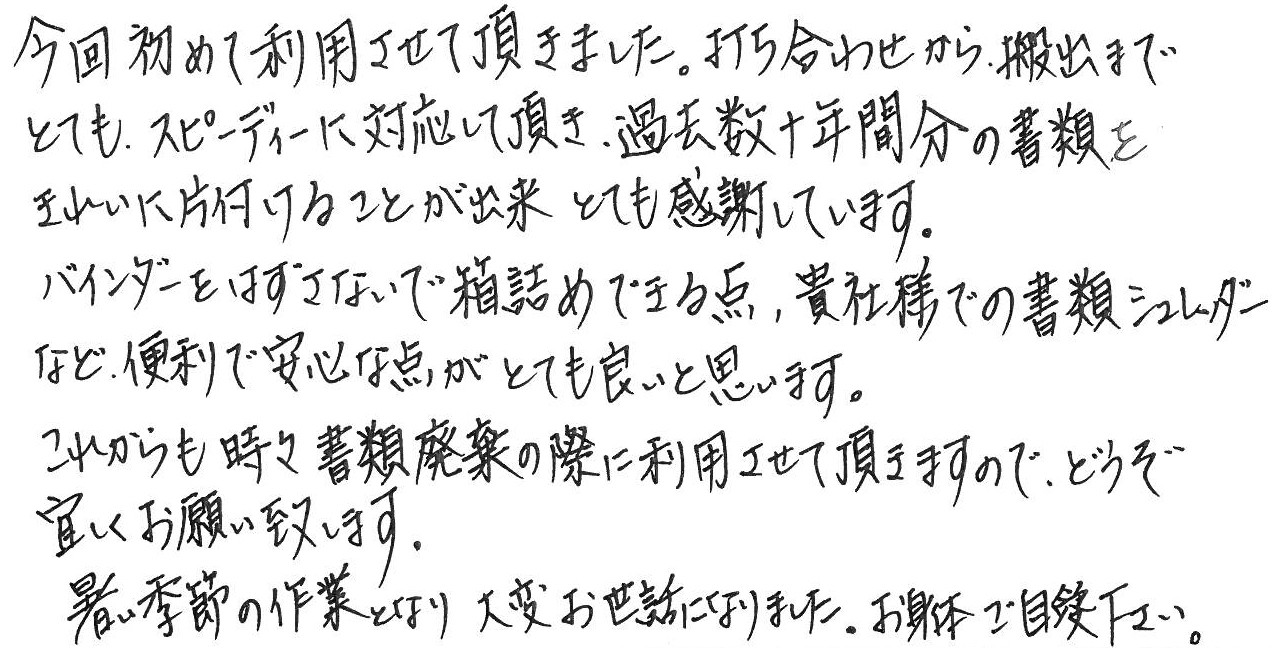 今回初めて利用させて頂きました。打ち合わせから、搬出まで
とても、スピーディーに対応して頂き、過去数十年間分の書類を
きれいに片付けることが出来 とても感謝しています。
バインダーをはずさないで箱詰めできる点、貴社様での書類シュレッダー
など、便利で安心な点がとても良いと思います。
これからも時々書類廃棄の際に利用させて頂きますので、どうぞ
宜しくお願い致します。
暑い季節の作業となり 大変お世話になりました。お身体ご自愛下さい。